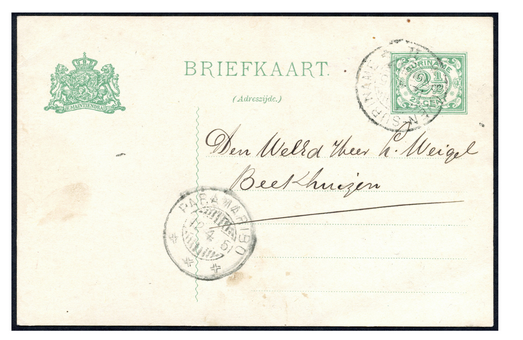 BRIEFKAART.
(Adreszijde.)
SURINAME
2½
CENT
Den WelEd Heer H. Weigel
Beekhuizen
PARAMARIBO
12 4